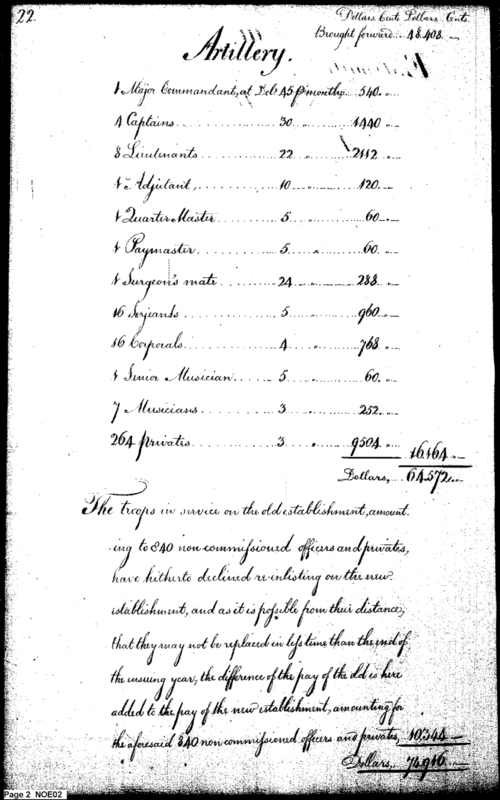 22.
Dollars. Cents Dollars. Cents.
Brought forward... 48.408. —
Artillery.
1 Major Commandant, at Dols. 45 ⅌ month, is .. 540. "—
4 Captains ........ 30 .... " .... 1440 "—
8 Lieutenants ........ 22 .... " .... 2112. "—
1 " Adjutant, ........ 10 .... " .... 120. "—
1 Quarter Master ........ 5 .... " .... 60. "—
1 Paymaster ........ 5 .... " .... 60. "—
1 Surgeon's mate ........ 24 .... " .... 288. "—
16 Serjeants ........ 5 .... " .... 960. "—
16 Corporals ........ 4 .... " .... 768. "—
1 Senior Musician .... 5 .... " .... 60. "—
7 Musicians ........ 3 .... " .... 252. "—
264 privates ........ 3 .... " .... 9504. "— 16.164 "—
Dollars, ... 64.572. "—
The troops in service on the old establishment, amount-
-ing to 840 non commissioned officers and privates,
have hitherto declined re-inlisting on the new
establishment, and as it is possible from their distance,
that they may not be replaced in less time than the end of
the insuing year, the difference of the pay of the old is here
added to the pay of the new establishment, amounting for
the aforesaid 840 non commissioned officers and privates, 10.344 —
Dollars, .. 74.916. —
Page 2 NOE02